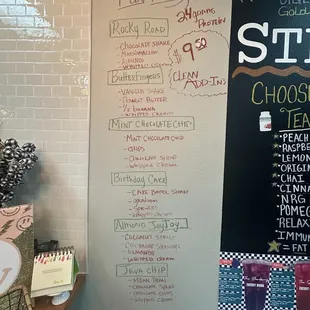 24 grams Protein
$9.50
Clean
Add-ins
Rocky Road
- Chocolate Shake
- Marshmallow
- Almond
- Whipped Cream
Butterfingers
- Vanilla Shake
- Peanut Butter
- 1/2 banana
- Whipped Cream
Mint Chocolate Chip
- Mint Chocolate
- Chips
- Chocolate Syrup
- Whipped Cream
Birthday Cake
- Cake Batter Shake
- Sprinkles
- Whipped Cream
Almond Joy Joy
- Coconut Shake
- Almonds
- Whipped Cream
Java Chip
- Chocolate Syrup
- Chocolate Chips
- Whipped Cream
Gold
ST
Choose
Tea
* Peach
* Rasp
* Lemon
* Origin
* Chai
* Cinna
* NRG
* Pomeg
* Relax
* Immu
* = Fat